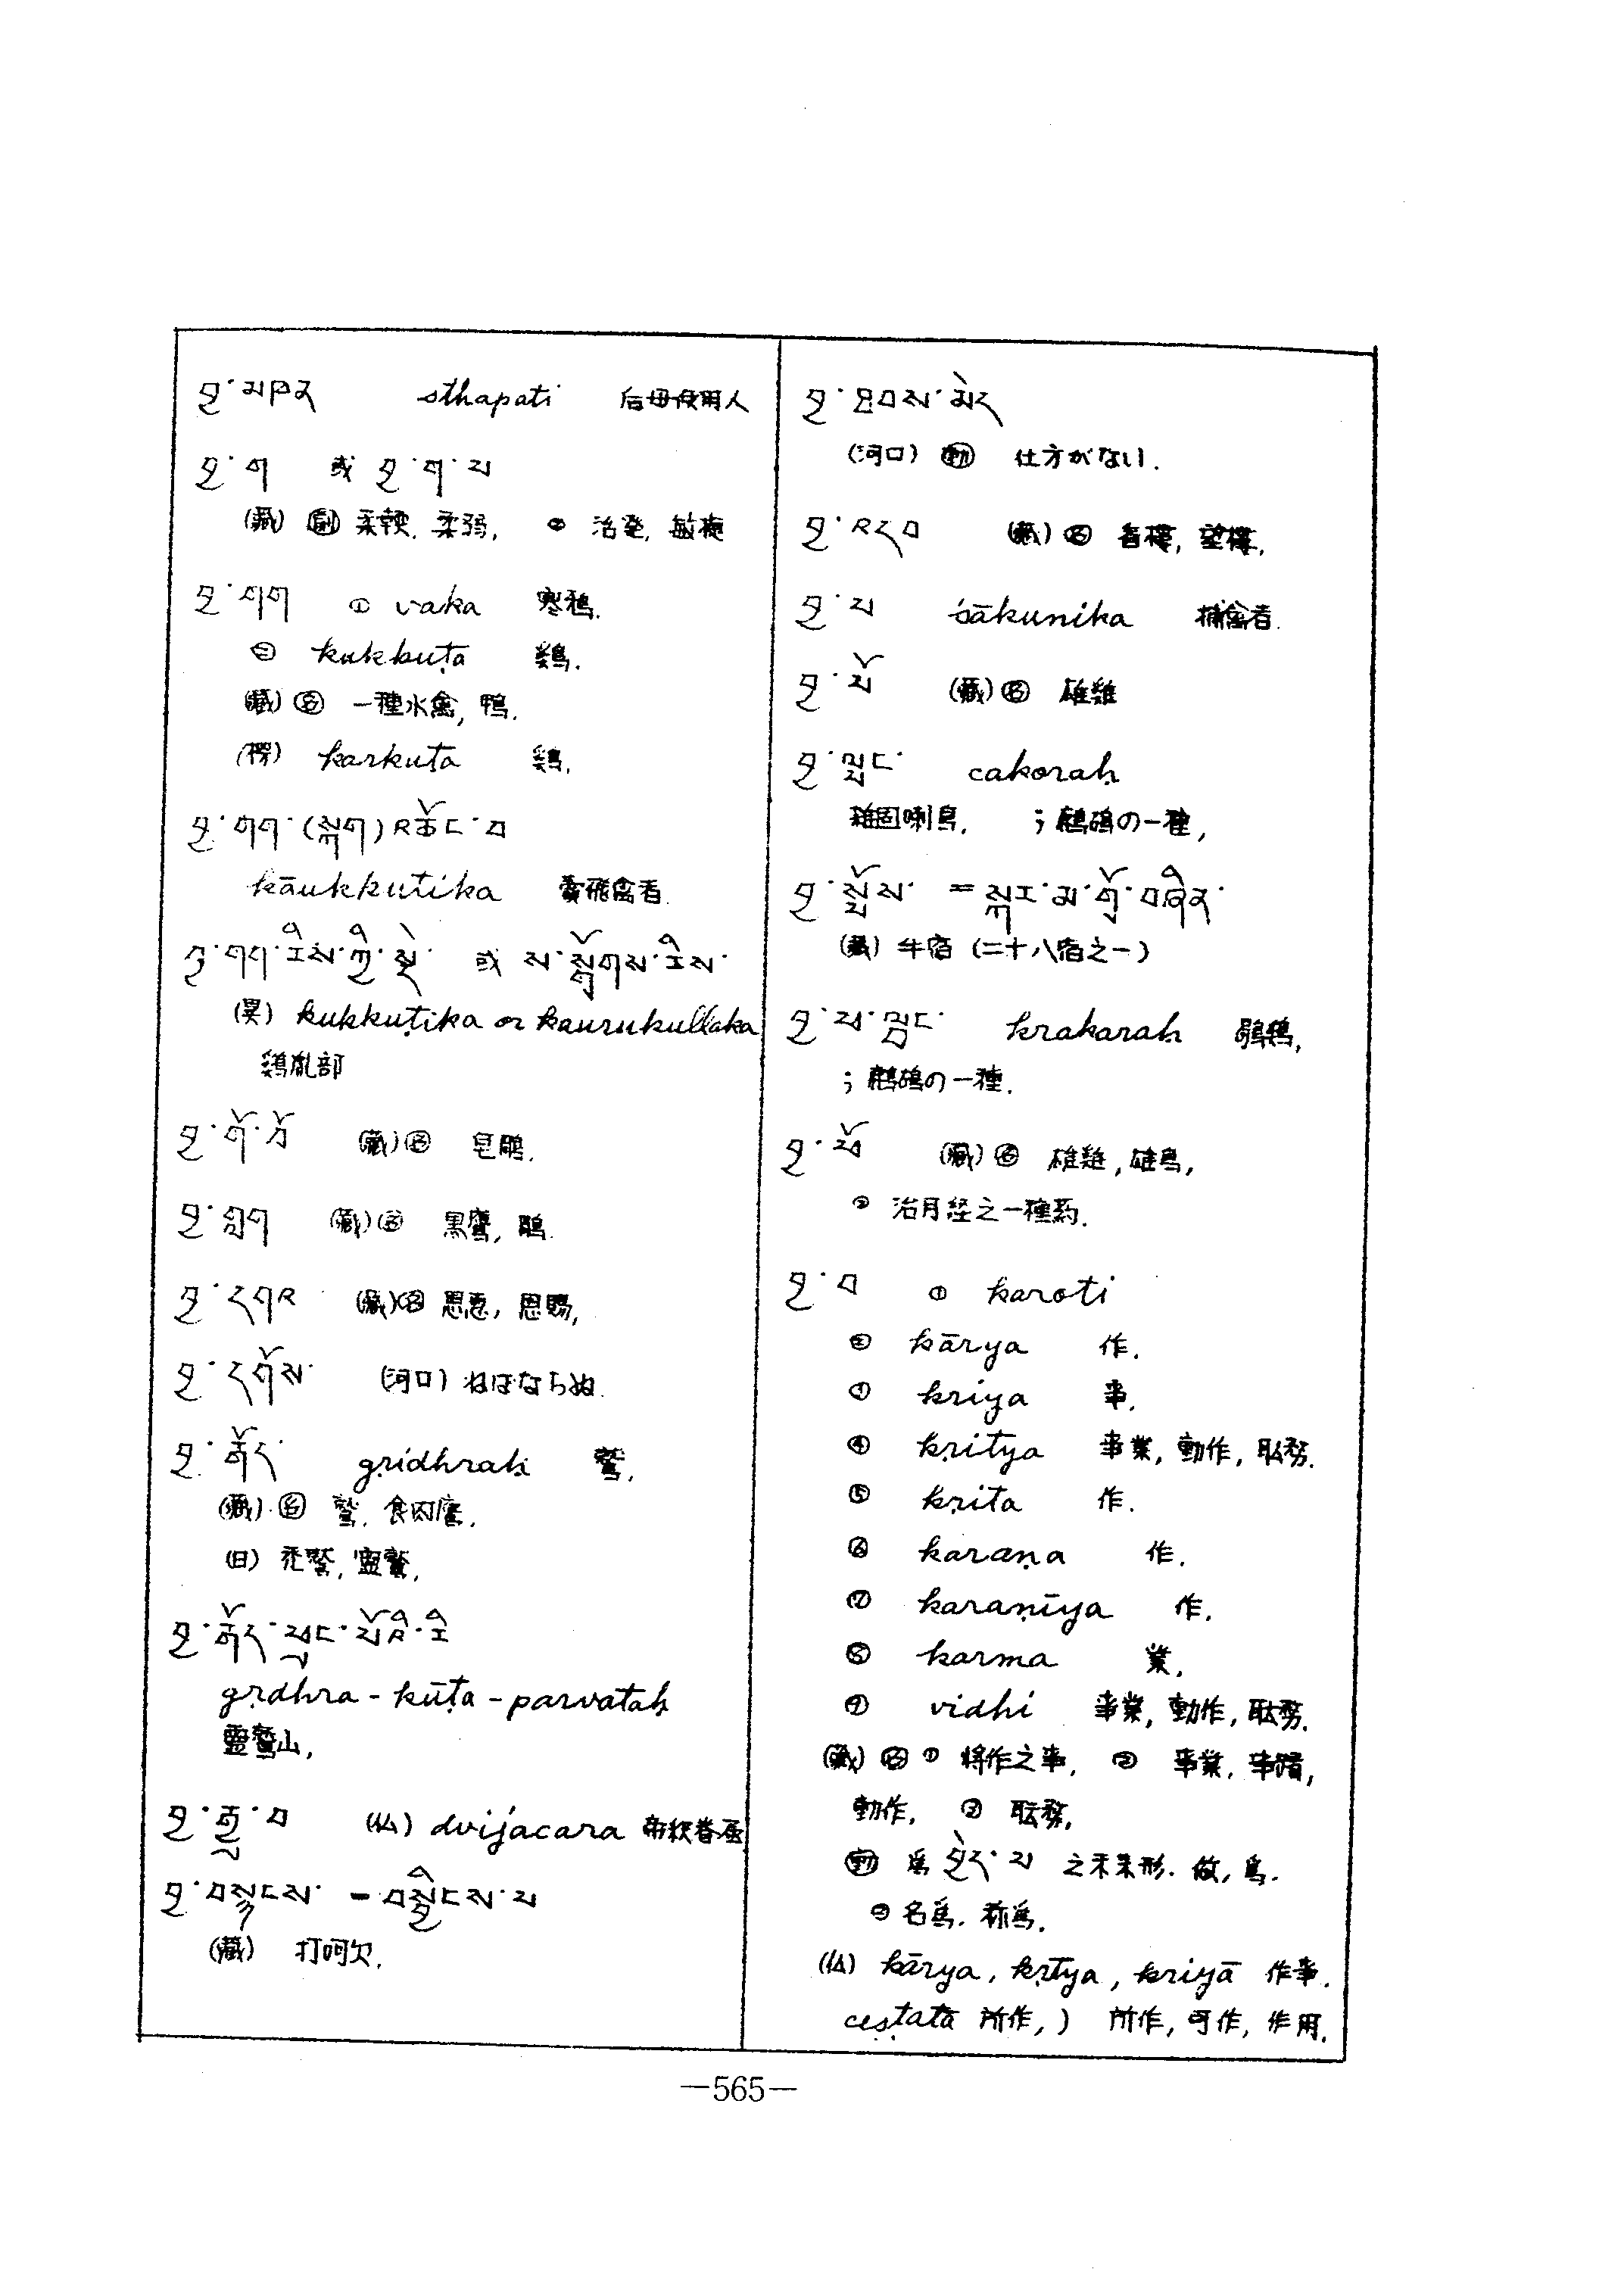 བྱ་མཁན sthapati 后毋使用人
བྱ་ག 或 བྱ་ག་པ
(藏) 副 柔輭, 柔弱, ② 活潑, 敏
བྱ་གག ① vaka 寒鴉.
② kukkuṭa 鷄.
(藏) 名 一種水禽, 鴨.
(梵) karkuṭa 鷄.
བྱ་གག་(སྐག)འཚོང་བ
kāukkuṭika 賣飛禽者.
བྱ་གག་རིས་ཀྱི་སྡེ་ 或 ས་སྒྲོགས་རིས་
(異) kukkuṭika or kaurukullaka
鷄胤部
བྱ་གོ་བོ (藏) 名 皂鵰.
བྱ་གླག (藏) 名 黒鷹, 鵰.
བྱ་དགའ (藏) 名 恩惠, 恩賜,
བྱ་དགོས་ (河口) ねばならぬ.
བྱ་རྒོད་ gṛidhraḥ 鷲,
(藏) 名 鷲, 食肉鷹,
(日) 禿鷲, 靈鷲,
བྱ་རྒོད་ཕུང་པོའི་རི
gṛdhra-kūṭa-parvataḥ
靈鷲山,
བྱ་རྒྱུ་བ (仏) dvijacara
བྱ་བསྙངས་ = བསྒྱིངས་པ
(藏) 打呵欠,
བྱ་ཐབས་མེད
(河口) 動 仕方がない.
བྱ་འདབ (藏) 名 望樓,
བྱ་པ śākunika 捕禽者.
བྱ་པོ (藏) 名 雄雞
བྱ་ལྤང་ cakoraḥ
鷓鴣の一種,
བྱ་སྤྱོས་ = སྐར་མ་གྲོ་བཞིན་
(藏) 牛宿 (二十八宿之一)
བྱ་ཕ་ལྦང་ krakaraḥ
; 鷓鴣の一種.
བྱ་ཕོ (藏) 名 雄雞, 雄鳥,
② 治月経之一種葯.
བྱ་བ ① karoti
② kārya 作.
③ kriya 事.
④ kṛitya 事業, 動作, 職務.
⑤ kṛita 作.
⑥ karaṇa 作.
⑦ karaṇīya 作.
⑧ karma 業.
⑨ vidhi 事業, 動作, 職務.
(藏) 名 ① 将作之事, ② 事業, 事蹟,
動作, ③ 職務,
動 為 བྱེད་པ 之未来形. 做, 為.
② 名為. 称為.
(仏) kārya, kṛtya, kriyā 作事.
ceṣṭatā 所作,) 所作, 可作, 作用.
—565—